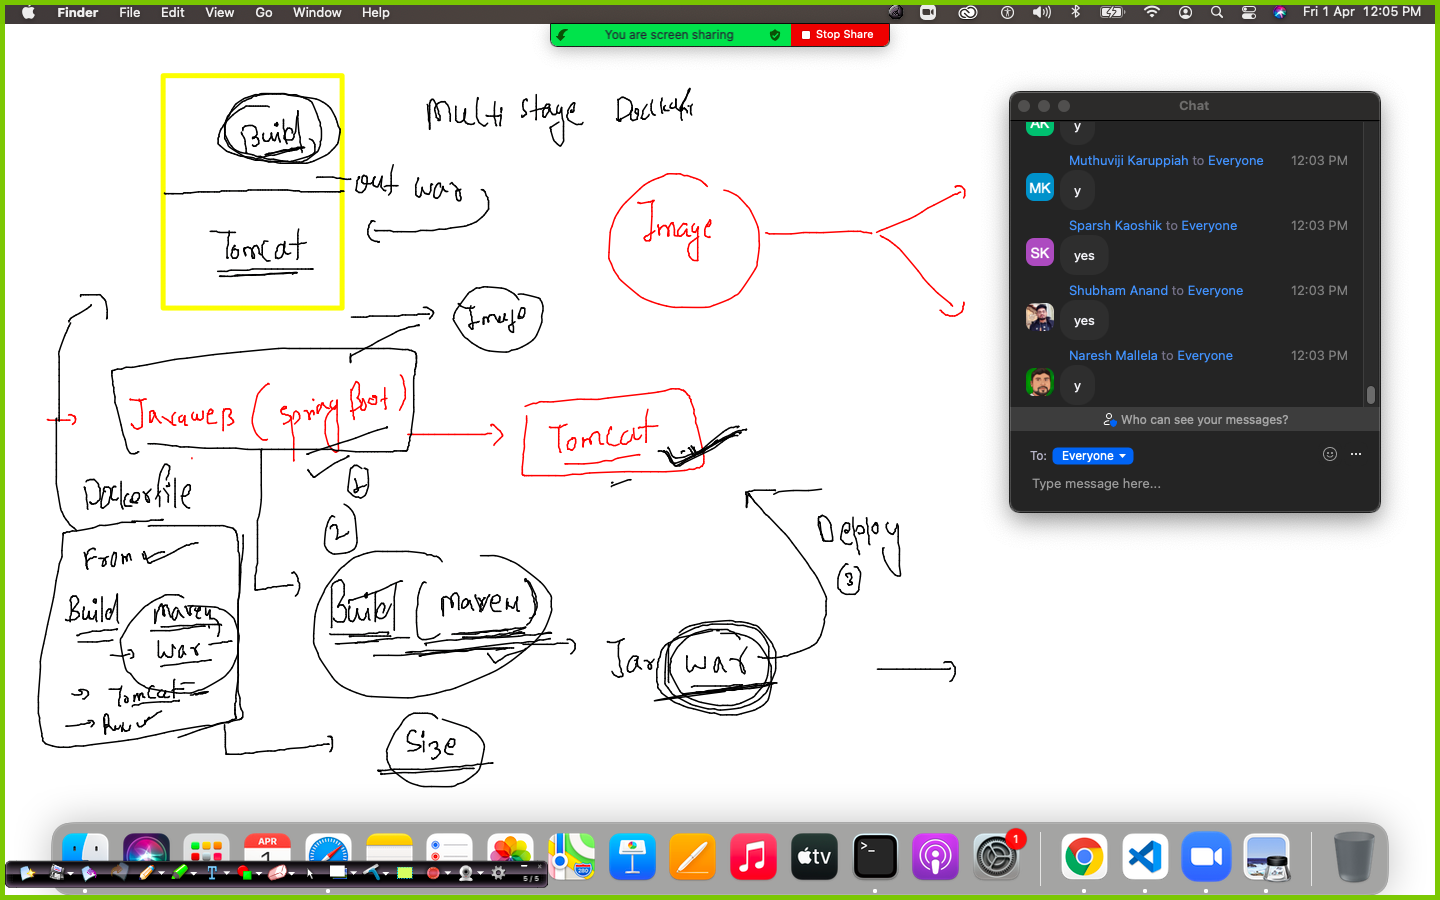 Finder File Edit View Go Window Help
Fri 1 Apr 12:05 PM
You are screen sharing
Stop Share
Build
out war
Tomcat
Multi Stage
Image
Image
Javaweb (Spring Boot)
Tomcat
1
2
Dockerfile
From
Build Maven
war
Tomcat
Run
Build (Maven)
Jar war
Deploy
3
Size
Chat
AK
y
Muthuviji Karuppiah to Everyone 12:03 PM
MK
y
Sparsh Kaoshik to Everyone 12:03 PM
SK
yes
Shubham Anand to Everyone 12:03 PM
yes
Naresh Mallela to Everyone 12:03 PM
y
Who can see your messages?
To: Everyone
Type message here...
APR
1
280
tv
>_
1
T
5/5